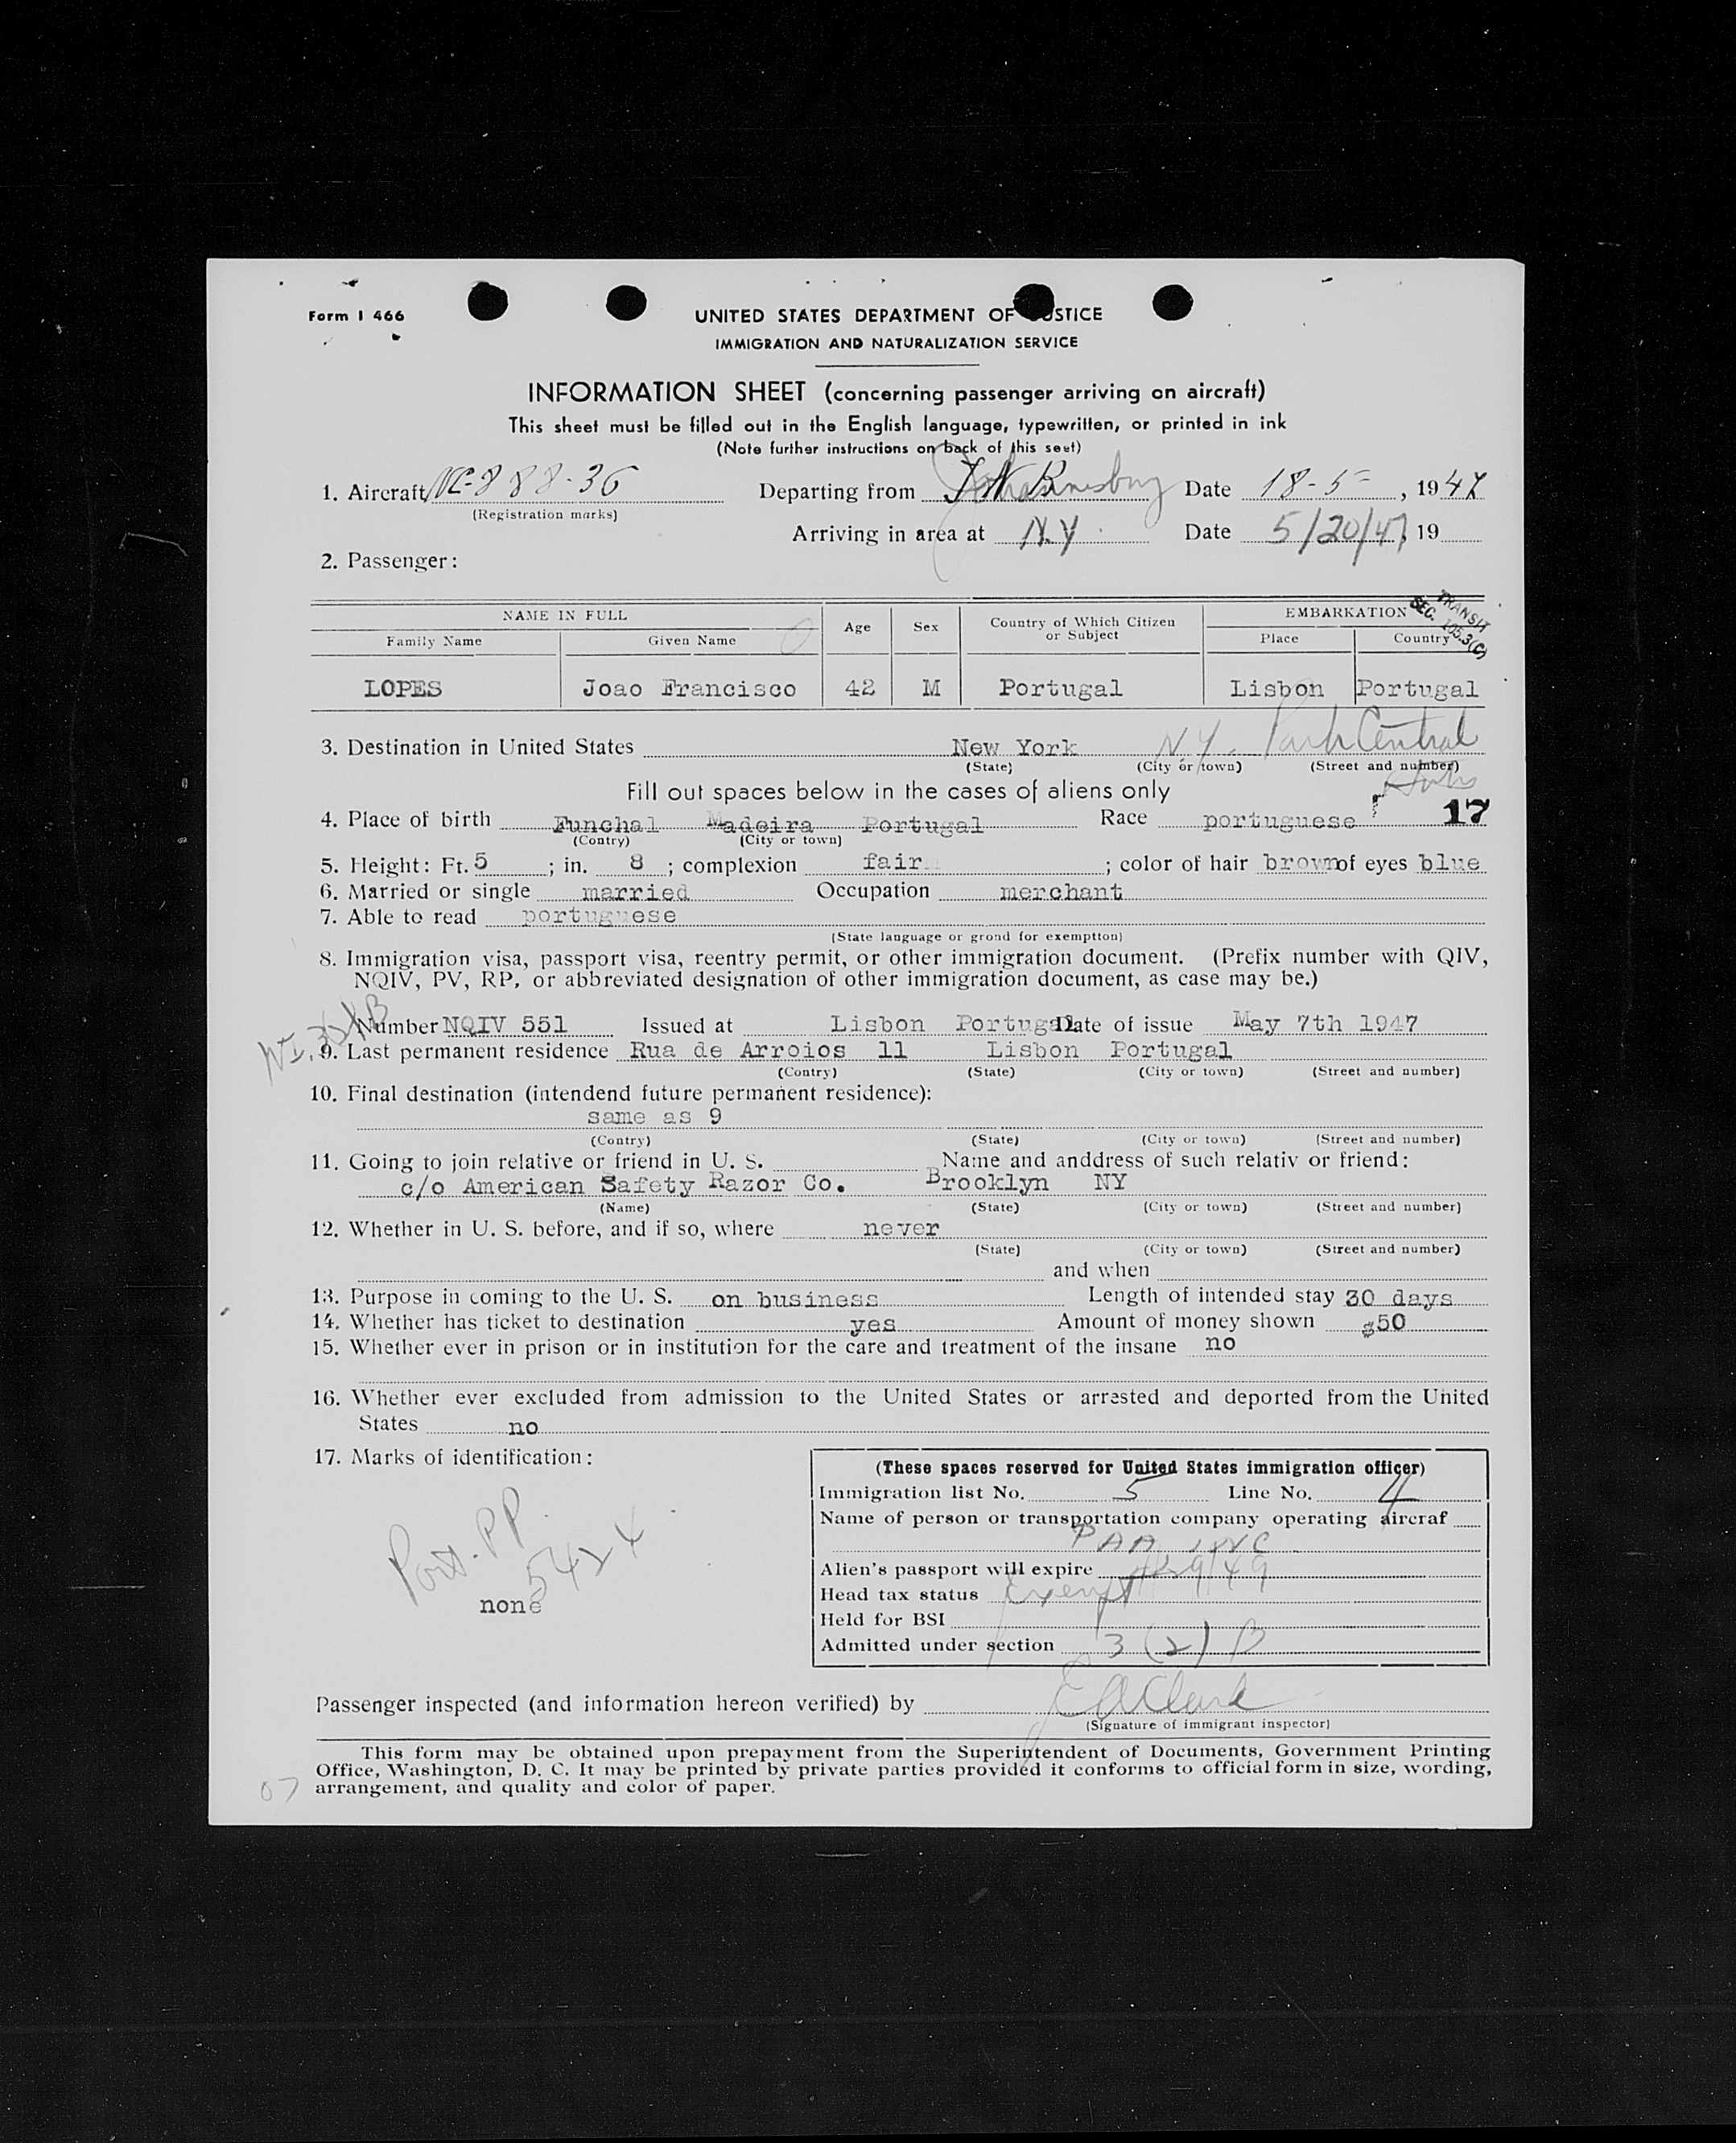 Form I 466
UNITED STATES DEPARTMENT OF JUSTICE
IMMIGRATION AND NATURALIZATION SERVICE
INFORMATION SHEET (concerning passenger arriving on aircraft)
This sheet must be filled out in the English language, typewritten, or printed in ink
(Note further instructions on back of this seet)
1. Aircraft NC-888-36 Departing from Johannesburg Date 18-5-, 1947
(Registration marks)
Arriving in area at N.Y. Date 5/20/47, 19
2. Passenger:
NAME IN FULL Age Sex Country of Which Citizen or Subject EMBARKATION
TRANSIT SEC. 105.3(C)
Family Name Given Name Place Country
LOPES Joao Francisco 42 M Portugal Lisbon Portugal
3. Destination in United States New York N.Y. Park Central
(State) (City or town) (Street and number)
Fill out spaces below in the cases of aliens only
4. Place of birth Funchal Madeira Portugal Race portuguese 17
(Contry) (City or town)
5. Height: Ft. 5; in. 8; complexion fair; color of hair brown of eyes blue
6. Married or single married Occupation merchant
7. Able to read portuguese
(State language or grond for exemption)
8. Immigration visa, passport visa, reentry permit, or other immigration document. (Prefix number with QIV,
NQIV, PV, RP, or abbreviated designation of other immigration document, as case may be.)
Number NQIV 551 Issued at Lisbon Portugal Date of issue May 7th 1947
9. Last permanent residence Rua de Arroios 11 Lisbon Portugal
(Contry) (State) (City or town) (Street and number)
10. Final destination (intendend future permanent residence):
same as 9
(Contry) (State) (City or town) (Street and number)
11. Going to join relative or friend in U. S. Name and anddress of such relativ or friend:
c/o American Safety Razor Co. Brooklyn NY
(Name) (State) (City or town) (Street and number)
12. Whether in U. S. before, and if so, where never
(State) (City or town) (Street and number)
and when
13. Purpose in coming to the U. S. on business Length of intended stay 30 days
14. Whether has ticket to destination yes Amount of money shown $50
15. Whether ever in prison or in institution for the care and treatment of the insane no
16. Whether ever excluded from admission to the United States or arrested and deported from the United
States no
17. Marks of identification:
Port. PP
5424
none
(These spaces reserved for United States immigration officer)
Immigration list No. 5 Line No. 4
Name of person or transportation company operating aircraf
PAA INC
Alien's passport will expire
Head tax status Exempt
Held for BSI
Admitted under section 3 (2) B
Passenger inspected (and information hereon verified) by E A Clark
(Signature of immigrant inspector)
This form may be obtained upon prepayment from the Superintendent of Documents, Government Printing
Office, Washington, D. C. It may be printed by private parties provided it conforms to official form in size, wording,
arrangement, and quality and color of paper.
07